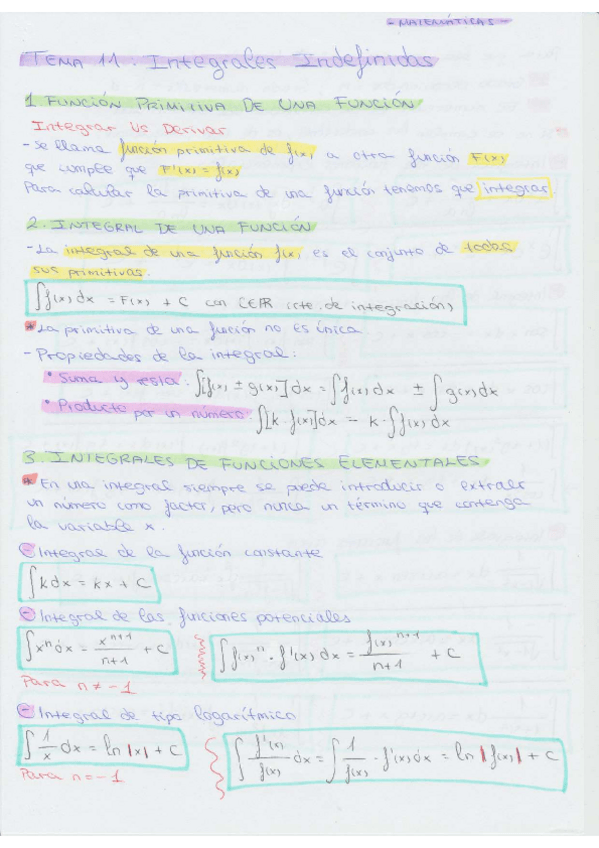 - MATEMÁTICAS -
TEMA 11 : Integrales Indefinidas
1. FUNCIÓN PRIMITIVA DE UNA FUNCIÓN
Integrar Vs Derivar
- Se llama función primitiva de f(x), a otra función F(x)
que cumple que F'(x) = f(x)
Para calcular la primitiva de una función tenemos que integrar.
2. INTEGRAL DE UNA FUNCIÓN
- La integral de una función f(x), es el conjunto de todas
sus primitivas.
∫f(x) dx = F(x) + C con C∈ℝ (cte. de integración)
* La primitiva de una función no es única
- Propiedades de la integral:
• Suma y resta: ∫[f(x) ± g(x)] dx = ∫f(x) dx ± ∫g(x) dx
• Producto por un número: ∫[k · f(x)] dx = k · ∫f(x) dx
3. INTEGRALES DE FUNCIONES ELEMENTALES
* En una integral siempre se puede introducir o extraer
un número como factor, pero nunca un término que contenga
la variable x.
- Integral de la función constante
∫k dx = kx + C
- Integral de las funciones potenciales
∫xⁿ dx = xⁿ⁺¹/n+1 + C ∫f(x)ⁿ · f'(x) dx = f(x)ⁿ⁺¹/n+1 + C
Para n ≠ -1
- Integral de tipo logarítmico
∫1/x dx = ln |x| + C ∫f'(x)/f(x) dx = ∫1/f(x) · f'(x) dx = ln |f(x)| + C
Para n = -1